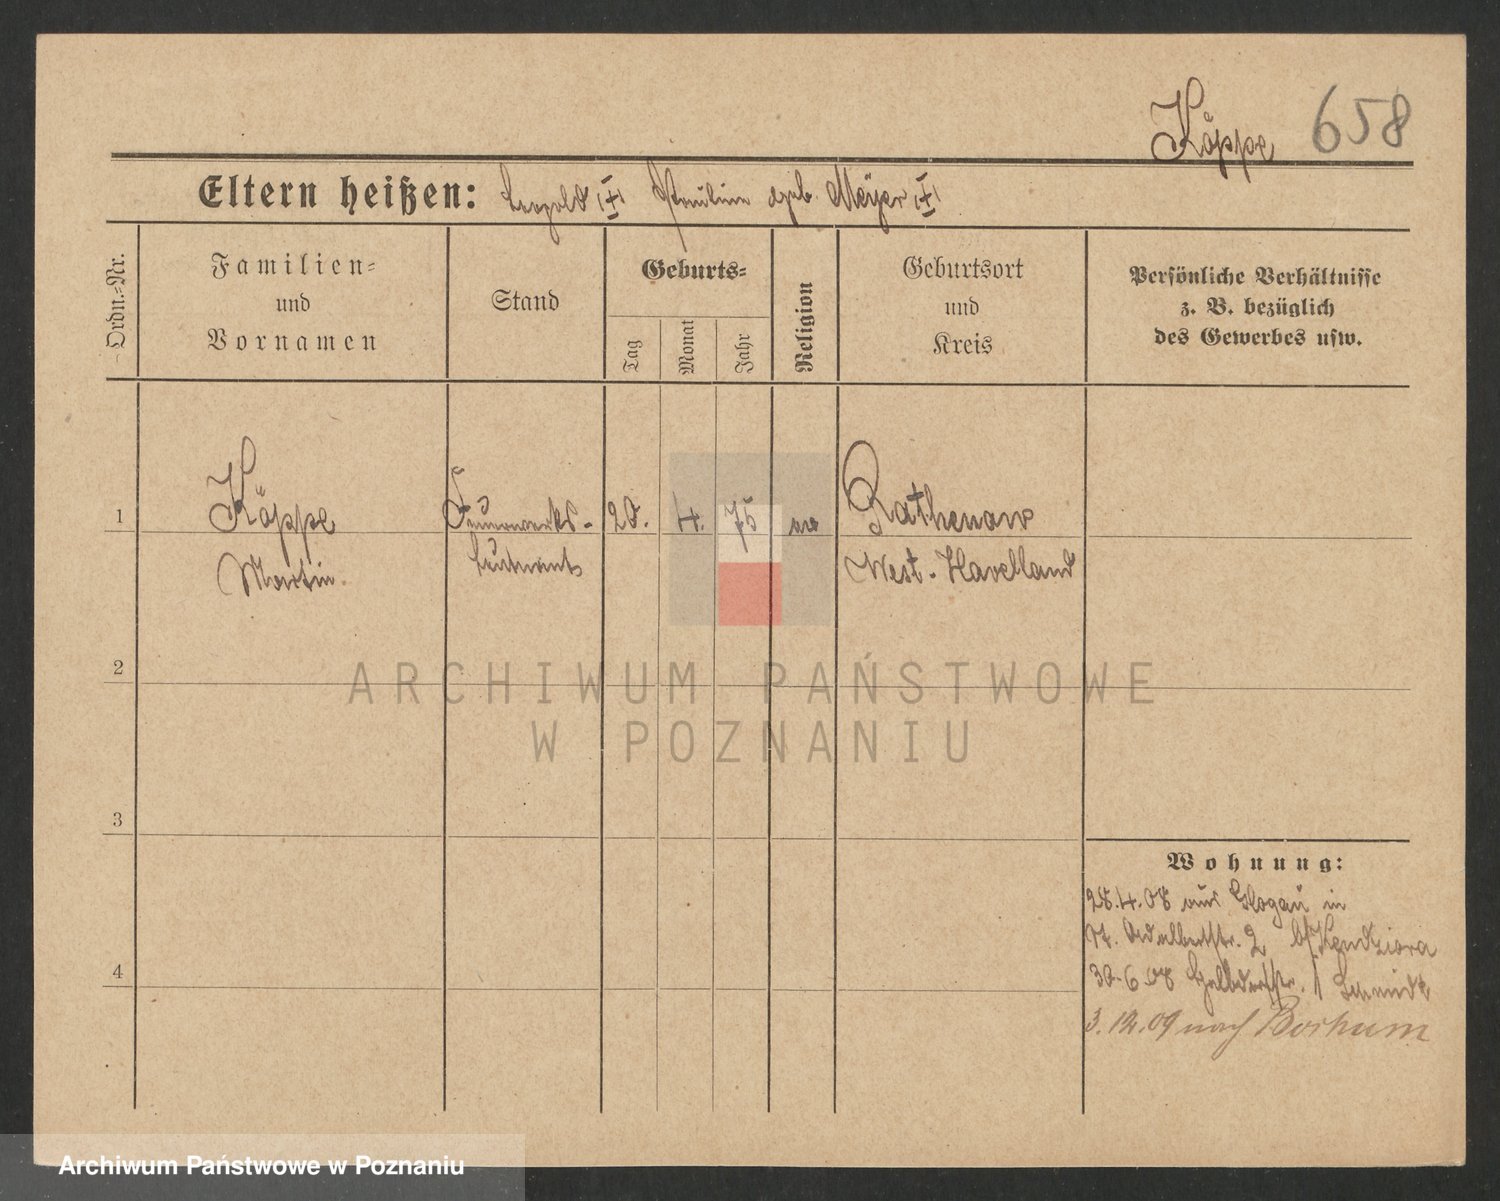 Köppe 658
Eltern heißen: Leopold (+) Pauline geb. Meyer (+)
Ordn.-Nr.
Familien-
und
Vornamen
Stand
Geburts-
Tag
Monat
Jahr
Religion
Geburtsort
und
Kreis
Persönliche Verhältnisse
z. B. bezüglich
des Gewerbes usw.
1
Köppe
Martin
Feuerwerks-
leutnant
20. 4. 75
ev
Rathenow
West-Havelland
2
ARCHIWUM PAŃSTWOWE
W POZNANIU
3
4
Wohnung:
28.4.08 aus Glogau in
Adalbertstr. 2 b/ Kendziora
30.6.08 1 Schmidt
3.12.09 nach Bochum
Archiwum Państwowe w Poznaniu